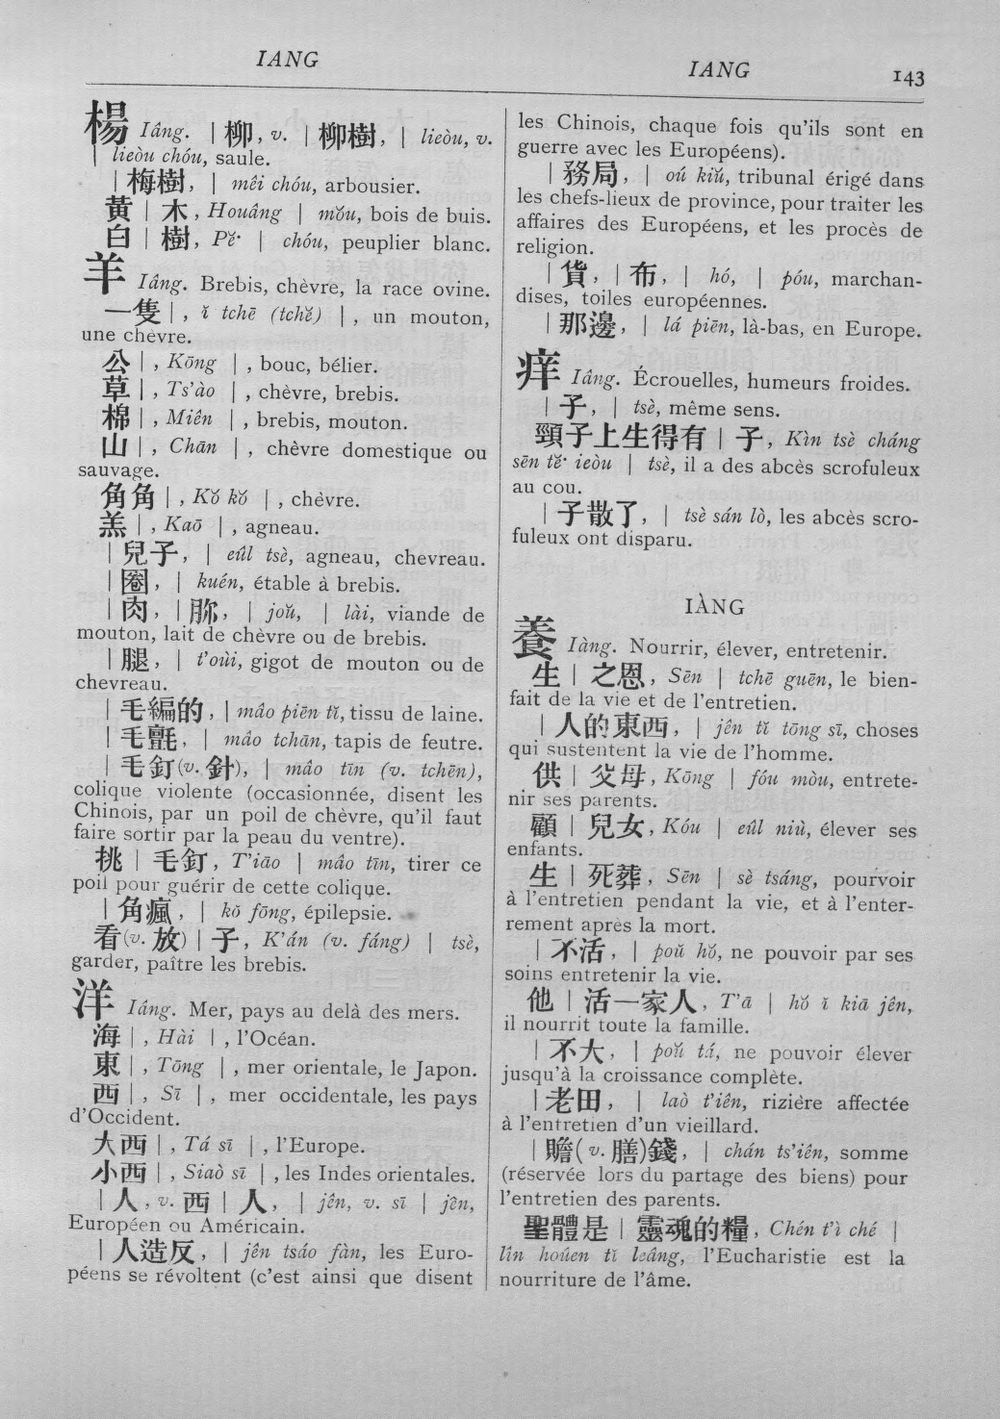 IANG
IANG
143
楊 Iâng. | 柳, v. | 柳樹, | lieòu, v.
| lieòu chóu, saule.
| 梅樹, | mêi chóu, arbousier.
黃 | 木, Houâng | mŏu, bois de buis.
白 | 樹, Pĕ· | chóu, peuplier blanc.
羊 Iâng. Brebis, chèvre, la race ovine.
一隻 |, ĭ tchē (tchĕ) |, un mouton,
une chèvre.
公 |, Kōng |, bouc, bélier.
草 |, Ts'ào |, chèvre, brebis.
棉 |, Miên |, brebis, mouton.
山 |, Chān |, chèvre domestique ou
sauvage.
角角 |, Kŏ kŏ |, chèvre.
羔 |, Kaō |, agneau.
| 兒子, | eûl tsè, agneau, chevreau.
| 圈, | kuén, étable à brebis.
| 肉, | 𦜇, | joŭ, | lài, viande de
mouton, lait de chèvre ou de brebis.
| 腿, | t'oùi, gigot de mouton ou de
chevreau.
| 毛編的, | mâo piēn tĭ, tissu de laine.
| 毛氈, | mâo tchān, tapis de feutre.
| 毛釘 (v. 針), | mâo tīn (v. tchēn),
colique violente (occasionnée, disent les
Chinois, par un poil de chèvre, qu'il faut
faire sortir par la peau du ventre).
挑 | 毛釘, T'iāo | mâo tīn, tirer ce
poil pour guérir de cette colique.
| 角瘋, | kŏ fōng, épilepsie.
看 (v. 放) | 子, K'án (v. fáng) | tsè,
garder, paître les brebis.
洋 Iâng. Mer, pays au delà des mers.
海 |, Hài |, l'Océan.
東 |, Tōng |, mer orientale, le Japon.
西 |, Sī |, mer occidentale, les pays
d'Occident.
大西 |, Tá sī |, l'Europe.
小西 |, Siaò sī |, les Indes orientales.
| 人, v. 西 | 人, | jên, v. sī | jên,
Européen ou Américain.
| 人造反, | jên tsáo fàn, les Euro-
péens se révoltent (c'est ainsi que disent
les Chinois, chaque fois qu'ils sont en
guerre avec les Européens).
| 務局, | oú kiŭ, tribunal érigé dans
les chefs-lieux de province, pour traiter les
affaires des Européens, et les procès de
religion.
| 貨, | 布, | hó, | póu, marchan-
dises, toiles européennes.
| 那邊, | lá piēn, là-bas, en Europe.
痒 Iâng. Écrouelles, humeurs froides.
| 子, | tsè, même sens.
頸子上生得有 | 子, Kìn tsè cháng
sēn tĕ· ieòu | tsè, il a des abcès scrofuleux
au cou.
| 子散了, | tsè sán lò, les abcès scro-
fuleux ont disparu.
IÀNG
養 Iàng. Nourrir, élever, entretenir.
生 | 之恩, Sēn | tchē guēn, le bien-
fait de la vie et de l'entretien.
| 人的東西, | jên tĭ tōng sī, choses
qui sustentent la vie de l'homme.
供 | 父母, Kōng | fóu mòu, entrete-
nir ses parents.
顧 | 兒女, Kóu | eûl niù, élever ses
enfants.
生 | 死葬, Sēn | sè tsáng, pourvoir
à l'entretien pendant la vie, et à l'enter-
rement après la mort.
| 不活, | poŭ hŏ, ne pouvoir par ses
soins entretenir la vie.
他 | 活一家人, T'ā | hŏ ĭ kiā jên,
il nourrit toute la famille.
| 不大, | poŭ tá, ne pouvoir élever
jusqu'à la croissance complète.
| 老田, | laò t'iên, rizière affectée
à l'entretien d'un vieillard.
| 贍 (v. 膳) 錢, | chán ts'iên, somme
(réservée lors du partage des biens) pour
l'entretien des parents.
聖體是 | 靈魂的糧, Chén t'ì ché |
lîn hoûen tĭ leâng, l'Eucharistie est la
nourriture de l'âme.